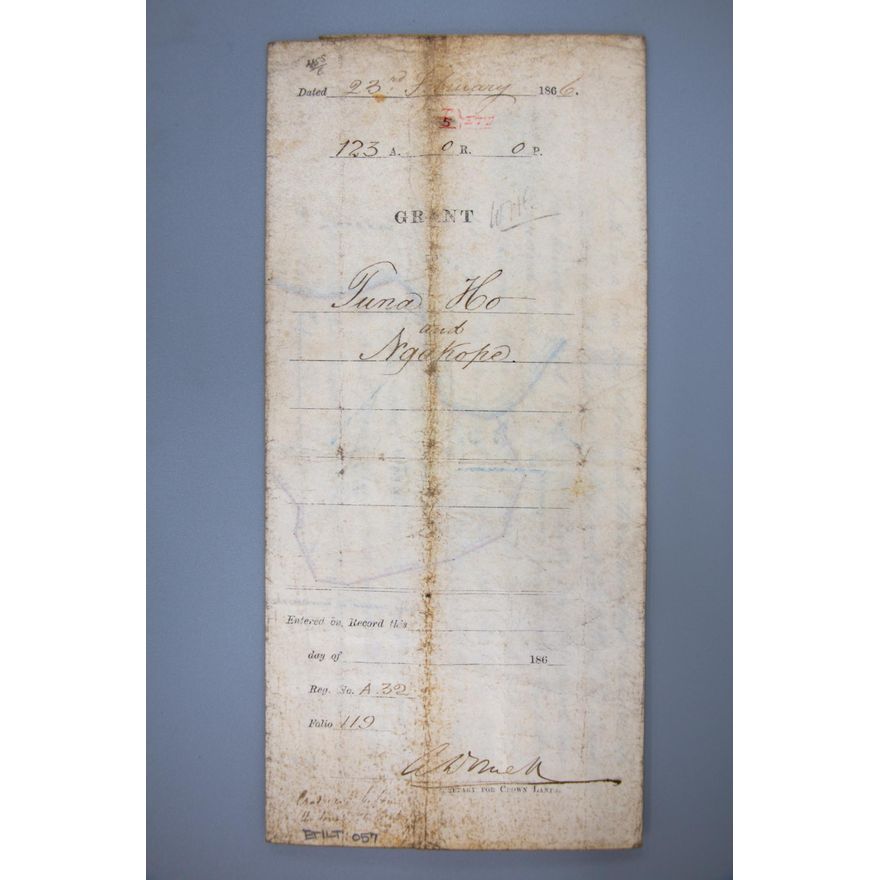 Dated 23rd February 1866.
123 A. 0 R. 0 P.
GRANT
Tuna Ho
and
Ngakope.
Entered on Record this
day of 186
Reg. No. A.32
Folio 119
SECRETARY FOR CROWN LANDS.
BTILT: 057